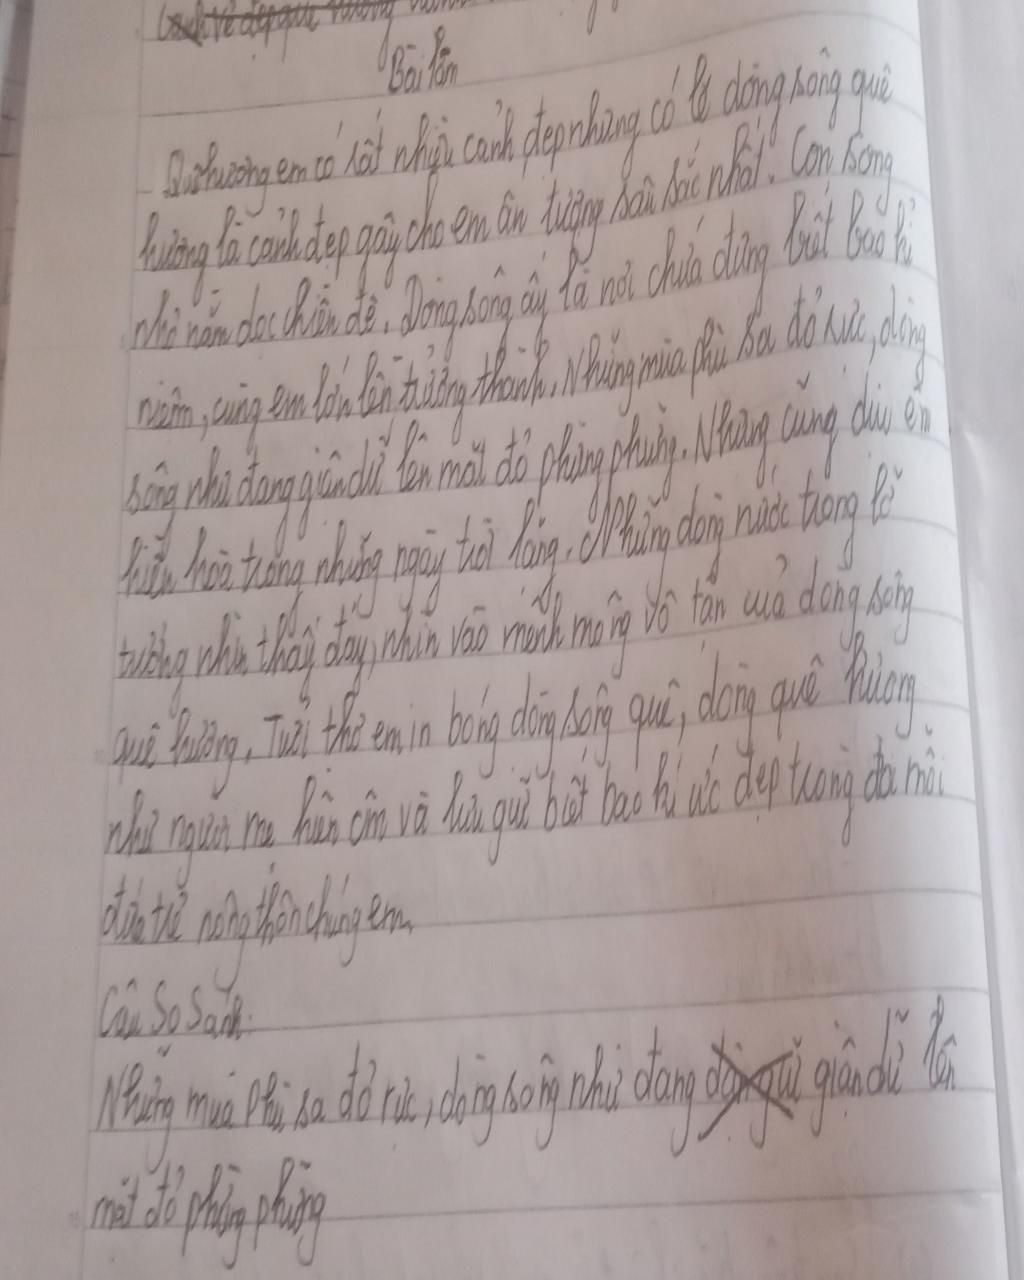 Bài làm
Quê hương em có rất nhiều cảnh đẹp nhưng có lẽ dòng sông quê
hương là cảnh đẹp gây cho em ấn tượng sâu sắc nhất. Con sông
nhỏ nằm dọc chiền đê. Dòng sông ấy là nơi chứa đựng biết bao kỉ
niệm, cùng em lớn lên trưởng thành. Những mùa phù sa đỏ rực, dòng
sông như đang giận dữ lên mặt đỏ phừng phừng. Nhưng cũng dịu êm
hiền hoà trong những ngày trời lặng. Những dòng nước trong tở
tưởng nhìn thấy đáy, nhìn vào mênh mông vô tận của dòng sông
quê hương. Tuổi thơ em in bóng dòng sông quê, dòng quê hương
như người mẹ hiền ôm và lưu giữ biết bao kí ức đẹp trong đời mỗi
đứa trẻ nông thôn chúng em.
Câu So Sánh.
Những mùa phù sa đỏ rực, dòng sông như đang giận dữ lên
mặt đỏ phừng phừng